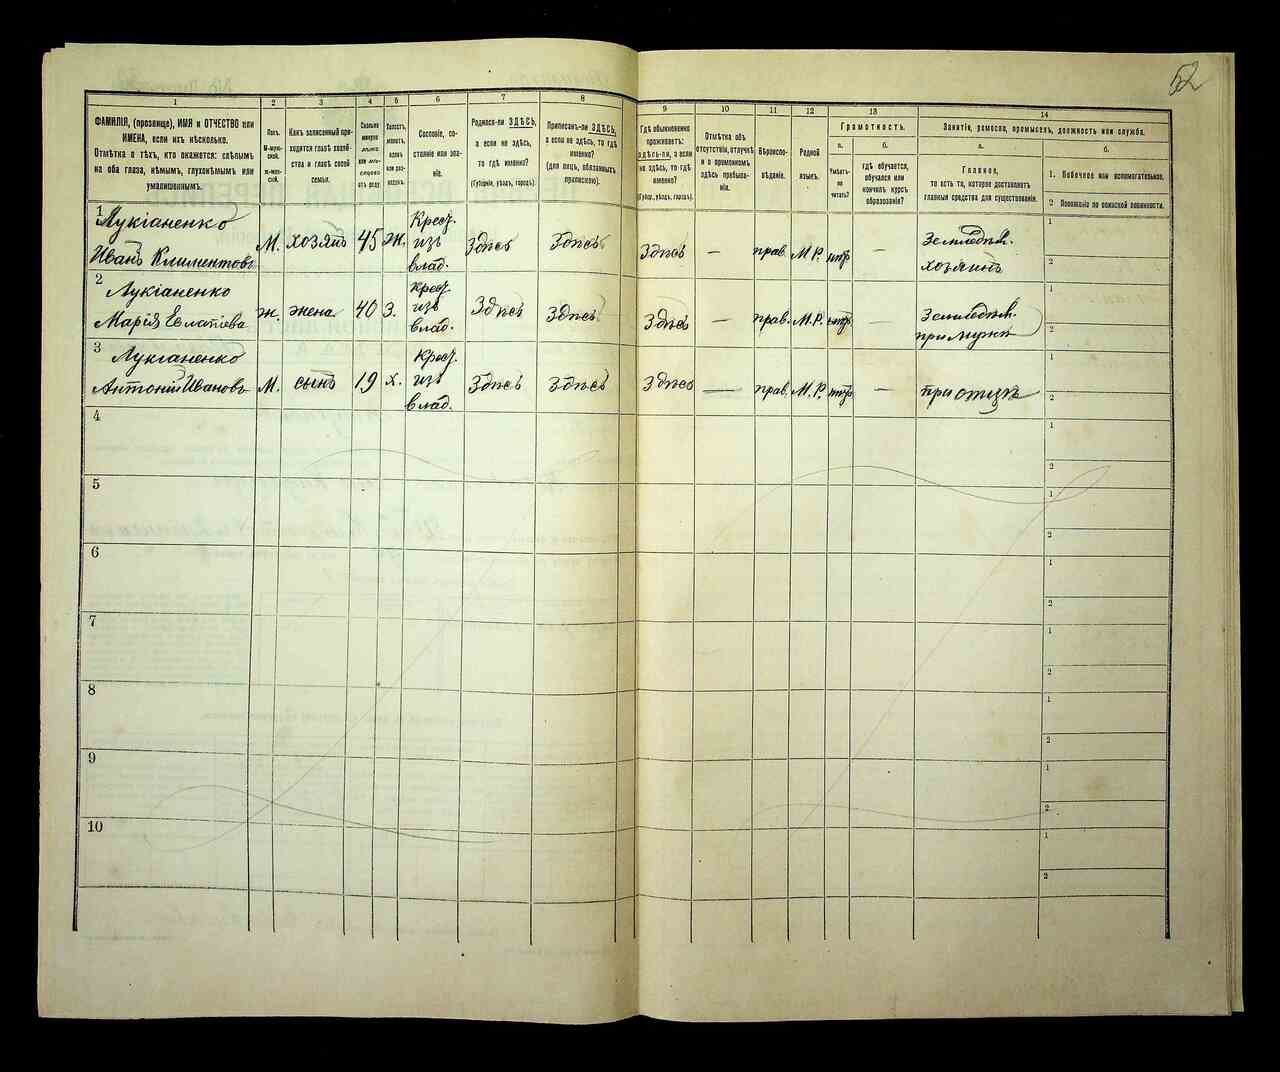 52
1 2 3 4 5 6 7 8 9 10 11 12 13 14
ФАМИЛІЯ, (прозвище), ИМЯ и ОТЧЕСТВО или
ИМЕНА, если ихъ нѣсколько.
Отмѣтка о тѣхъ, кто окажется: слѣпымъ
на оба глаза, нѣмымъ, глухонѣмымъ или
умалишеннымъ.
Полъ.
М-муж-
ской.
Ж-жен-
скій.
Какъ записанный при-
ходится главѣ хозяй-
ства и главѣ своей
семьи.
Сколько
минуло
лѣтъ
или мѣ-
сяцевъ
отъ роду
Холостъ,
женатъ,
вдовъ
или раз-
веденъ.
Сословіе, со-
стояніе или зва-
ніе.
Родился-ли ЗДѢСЬ,
а если не здѣсь,
то гдѣ именно?
(Губернія, уѣздъ, городъ).
Приписанъ-ли ЗДѢСЬ,
а если не здѣсь, то гдѣ
именно?
(для лицъ, обязанныхъ
припиской).
Гдѣ обыкновенно
проживаетъ:
здѣсь-ли, а если
не здѣсь, то гдѣ
именно?
(Губерн., уѣздъ, городъ).
Отмѣтка объ
отсутствіи, отлучкѣ
и о временномъ
здѣсь пребыва-
ніи.
Вѣроиспо-
вѣданіе.
Родной
языкъ.
Грамотность.
а.
Умѣетъ-
ли
читать?
б.
гдѣ обучается,
обучался или
кончилъ курсъ
образованія?
Занятіе, ремесло, промыселъ, должность или служба.
а.
Главное,
то есть то, которое доставляетъ
главныя средства для существованія.
б.
1. Побочное или вспомогательное.
2. Положеніе по воинской повинности.
1 Лукіаненко
Иванъ Климентовъ М. хозяинъ 45 ж. Крест. изъ влад. Здѣсь Здѣсь Здѣсь — прав. М.Р. нтъ — Земледѣл. хозяинъ 1 2
2 Лукіаненко
Марія Евлатіева ж. жена 40 З. Крест. изъ влад. Здѣсь Здѣсь Здѣсь — прав. М.Р. нтъ — Земледѣл. при мужѣ 1 2
3 Лукіаненко
Антоній Ивановъ М. сынъ 19 х. Крест. изъ влад. Здѣсь Здѣсь Здѣсь — прав. М.Р. нтъ — при отцѣ 1 2
4 1 2
5 1 2
6 1 2
7 1 2
8 1 2
9 1 2
10 1 2